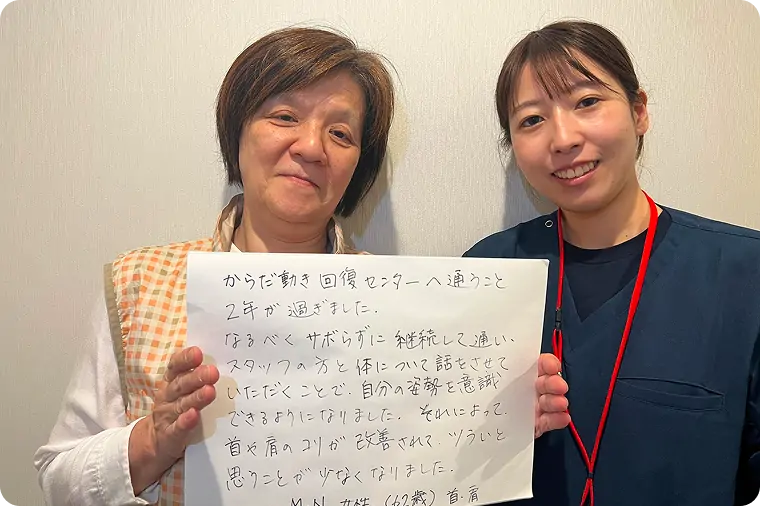 からだ動き回復センターへ通うこと
2年が過ぎました.
なるべくサボらずに継続して通い、
スタッフの方と体について話をさせて
いただくことで、自分の姿勢を意識
できるようになりました. それによって、
首や肩のコリが改善されて、ツラいと
思うことが少なくなりました.
M.N 女性 (62歳) 首.肩